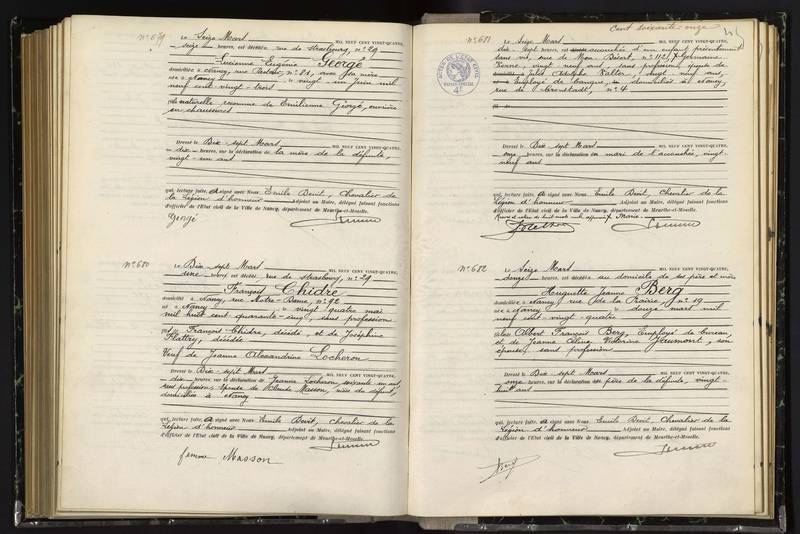 N° 679
Le Seize Mars MIL NEUF CENT VINGT-QUATRE,
seize heures, est décédée rue de Strasbourg, n° 29
Lucienne Eugénie George
domiciliée à Nancy, rue Pasteur, n° 21, avec sa mère
née à Nancy le vingt-un Juin mil
neuf cent vingt-trois
fille naturelle reconnue de Emilienne George, ouvrière
en chaussures
Devant le Dix-sept Mars MIL NEUF CENT VINGT-QUATRE,
dix heures, sur la déclaration de la mère de la défunte,
vingt-un ans
qui, lecture faite, a signé avec Nous Emile Devit, Chevalier de
la Légion d'honneur Adjoint au Maire, délégué faisant fonctions
d'officier de l'Etat civil de la Ville de Nancy, département de Meurthe-et-Moselle.
George
N° 680
Le Dix-sept Mars MIL NEUF CENT VINGT-QUATRE,
une heures, est décédé rue de Strasbourg, n° 29
François Chidre
domicilié à Nancy, rue Notre-Dame, n° 92
né à Nancy le vingt-quatre mai
mil huit cent quarante-cinq, sans profession
fils de François Chidre, décédé, et de Joséphine
décédée
Veuf de Jeanne Alexandrine Locheron
Devant le Dix-sept Mars MIL NEUF CENT VINGT-QUATRE,
dix heures, sur la déclaration de Jeanne Locheron, soixante-un ans,
sans profession, épouse de Masson, nièce du défunt,
domiciliée à Nancy
qui, lecture faite, a signé avec Nous Emile Devit, Chevalier de la
Légion d'honneur Adjoint au Maire, délégué faisant fonctions
d'officier de l'Etat civil de la Ville de Nancy, département de Meurthe-et-Moselle.
femme Masson
Cent soixante onze
N° 681
Le Seize Mars MIL NEUF CENT VINGT-QUATRE,
dix-sept heures, est accouchée d'un enfant présentement
sans vie, rue de Mon Désert, n° 112, Germaine
vingt-neuf ans, sans profession, épouse de
Jules Adolphe vingt-neuf ans,
Employé de banque, domiciliés à Nancy,
rue de n° 4
Devant le Dix-sept Mars MIL NEUF CENT VINGT-QUATRE,
onze heures, sur la déclaration du mari de l'accouchée, vingt-
neuf ans
qui, lecture faite, a signé avec Nous Emile Devit, Chevalier de la
Légion d'honneur Adjoint au Maire, délégué faisant fonctions
d'officier de l'Etat civil de la Ville de Nancy, département de Meurthe-et-Moselle.
Marie
N° 682
Le Seize Mars MIL NEUF CENT VINGT-QUATRE,
douze heures, est décédée au domicile de ses père et mère
Huguette Jeanne Berg
domiciliée à Nancy, rue de la Prairie, n° 19
née à Nancy le douze mars mil
neuf cent vingt-quatre
Albert François Berg, Employé de bureau,
et de Jeanne Céline Victorine son
épouse, sans profession
Devant le Dix-sept Mars MIL NEUF CENT VINGT-QUATRE,
onze heures, sur la déclaration du père de la défunte, vingt-
huit ans
qui, lecture faite, a signé avec Nous Emile Devit, Chevalier de la
Légion d'honneur Adjoint au Maire, délégué faisant fonctions
d'officier de l'Etat civil de la Ville de Nancy, département de Meurthe-et-Moselle.
Berg